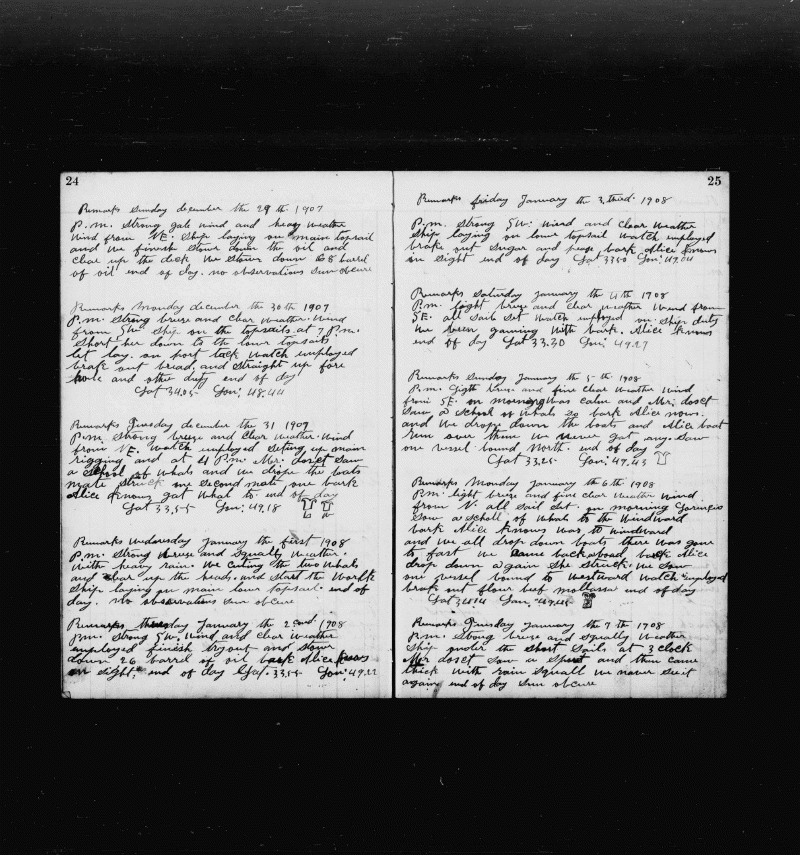 24
Remarks Sunday december the 29 th 1907
P.m. Strong gale wind and heavy weather
wind from NE. Ship laying on main topsail
and we finish Stower down the oil and
clear up the deck We Stower down 68 barrel
of oil end of day. no observations Sun obcure
Remarks Monday december the 30 th 1907
P.m. Strong breeze and clear weather. wind
from SW. Ship on the topsails at 7 P.m.
Short her down to the lower topsails
let lay. on port tack watch employed
brake out bread, and straight up fore
hole and other duty end of day
Lat 34.05 Lon: 48.44
Remarks Tuesday december the 31 1907
P.m. strong breeze and clear weather. wind
from NE. watch employed seting up main
rigging and at 4 P.m. Mr. doset Saw
a School of Whals and we drope the boats
mate Struck one Second mate one bark
Alice Knows gat What to end of day
Lat 33.55 Lon: 49.18
Remarks Wednesday January the first 1908
P.m. Strong breeze and Squally weather.
With heavy rain. We cuting the two whals
and clear up the heads. and Start the Works
Ship laying on main lower topsail. end of
day. No observations Sun obcure
Remarks thursday January the 2 cond. 1908
P.m. Strong SW. Wind and clear weather
employed finish tryout and Stower
down 26 barrel of oil bark Alice Knows
on sight. end of day Lat. 33.55 Lon: 49.22
25
Remarks friday January the 3. thad. 1908
P.m. Strong SW. Wind and Clear Weather
Ship laying on lower topsail watch employed
brake out Sugar and pease bark Alice Knows
in Sight end of day Lat 33.50 Lon: 49.04
Remarks Saturday January the 4 th 1908
P.m. light breeze and clear weather Wind from
SE. all Sail Set Watch employed on Ship duty
We been gaming With bark. Alice Knows
end of day Lat 33.30 Lon: 49.27
Remarks Sunday January the 5 th. 1908
P.m. Ligth breeze and fine clear Weather Wind
from SE. on morning Was calm and Mr. doset
Saw a School of Whals So bark Alice nows.
and We drope down the boats and Alice boat
run over them We never gat any. Saw
one vessel bound North. end of day
Lat 33.25 Lon: 49.43
Remarks Monday January the 6 th. 1908
P.m. light breeze and fine clear Weather Wind
from N. all Sail Set. on morning
Saw a Scholl of Whals to the Windward
bark Alice Knows Was to windward
and we all drop down boats there Was gone
to fast We came back aboad, bark Alice
drop down again She Struck. We Saw
one vessel bound to Westward Watch employed
brake out flour beef mollasses end of day
Lat 34.14 Lon. 49.46
Remarks Tuesday January the 7 th 1908
P.m. Strong breeze and Squally Weather
Ship under the Short Sails at 3 clock
Mr doset Saw a Spout and then came
thick With rain Squall We never See it
again end of day Sun obcure